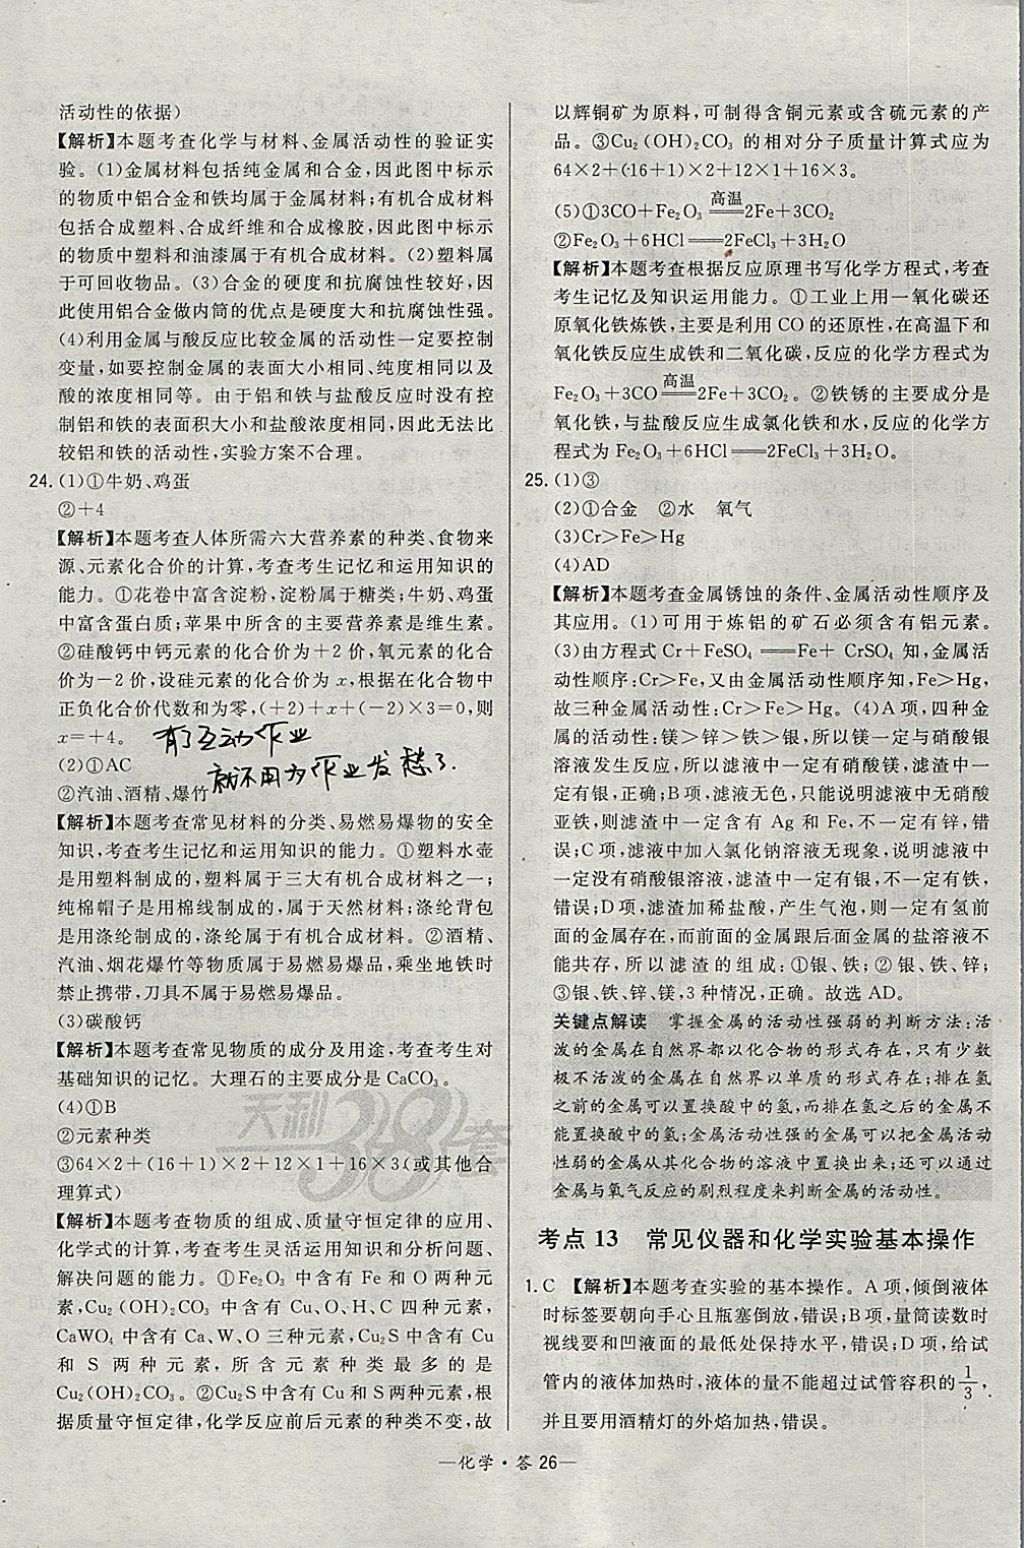 活动性的依据)
【解析】本题考查化学与材料、金属活动性的验证实
验。(1)金属材料包括纯金属和合金,因此图中标示
的物质中铝合金和铁均属于金属材料;有机合成材料
包括合成塑料、合成纤维和合成橡胶,因此图中标示
的物质中塑料和油漆属于有机合成材料。(2)塑料属
于可回收物品。(3)合金的硬度和抗腐蚀性较好,因
此使用铝合金做内筒的优点是硬度大和抗腐蚀性强。
(4)利用金属与酸反应比较金属的活动性一定要控制
变量,如要控制金属的表面大小相同、纯度相同以及
酸的浓度相同等。由于铝和铁与盐酸反应时没有控
制铝和铁的表面积大小和盐酸浓度相同,因此无法比
较铝和铁的活动性,实验方案不合理。
24. (1)①牛奶、鸡蛋
②+4
【解析】本题考查人体所需六大营养素的种类、食物来
源、元素化合价的计算,考查考生记忆和运用知识的
能力。①花卷中富含淀粉,淀粉属于糖类;牛奶、鸡蛋
中富含蛋白质;苹果中所含的主要营养素是维生素。
②硅酸钙中钙元素的化合价为+2价,氧元素的化合
价为-2价,设硅元素的化合价为x,根据在化合物中
正负化合价代数和为零,(+2)+x+(-2)×3=0,则
x=+4。
有了互动作业
就不用为作业发愁了.
(2)①AC
②汽油、酒精、爆竹
【解析】本题考查常见材料的分类、易燃易爆物的安全
知识,考查考生记忆和运用知识的能力。①塑料水壶
是用塑料制成的,塑料属于三大有机合成材料之一;
纯棉帽子是用棉线制成的,属于天然材料;涤纶背包
是用涤纶制成的,涤纶属于有机合成材料。②酒精、
汽油、烟花爆竹等物质属于易燃易爆品,乘坐地铁时
禁止携带,刀具不属于易燃易爆品。
(3)碳酸钙
【解析】本题考查常见物质的成分及用途,考查考生对
基础知识的记忆。大理石的主要成分是CaCO₃。
(4)①B
②元素种类
③64×2+(16+1)×2+12×1+16×3(或其他合
理算式)
【解析】本题考查物质的组成、质量守恒定律的应用、
化学式的计算,考查考生灵活运用知识和分析问题、
解决问题的能力。①Fe₂O₃中含有Fe和O两种元
素,Cu₂(OH)₂CO₃中含有Cu、O、H、C四种元素,
CaWO₄中含有Ca、W、O三种元素,Cu₂S中含有Cu
和S两种元素,所含元素种类最多的是
Cu₂(OH)₂CO₃。②Cu₂S中含有Cu和S两种元素,根
据质量守恒定律,化学反应前后元素的种类不变,故
天利38套
以辉铜矿为原料,可制得含铜元素或含硫元素的产
品。③Cu₂(OH)₂CO₃的相对分子质量计算式应为
64×2+(16+1)×2+12×1+16×3。
(5)①3CO+Fe₂O₃ 高温══ 2Fe+3CO₂
②Fe₂O₃+6HCl══2FeCl₃+3H₂O
【解析】本题考查根据反应原理书写化学方程式,考查
考生记忆及知识运用能力。①工业上用一氧化碳还
原氧化铁炼铁,主要是利用CO的还原性,在高温下和
氧化铁反应生成铁和二氧化碳,反应的化学方程式为
Fe₂O₃+3CO 高温══ 2Fe+3CO₂。②铁锈的主要成分是
氧化铁,与盐酸反应生成氯化铁和水,反应的化学方
程式为Fe₂O₃+6HCl══2FeCl₃+3H₂O。
25. (1)③
(2)①合金 ②水 氧气
(3)Cr>Fe>Hg
(4)AD
【解析】本题考查金属锈蚀的条件、金属活动性顺序及
其应用。(1)可用于炼铝的矿石必须含有铝元素。
(3)由方程式Cr+FeSO₄══Fe+ CrSO₄知,金属活
动性顺序:Cr>Fe,又由金属活动性顺序知,Fe>Hg,
故三种金属活动性:Cr>Fe>Hg。(4)A项,四种金
属的活动性:镁>锌>铁>银,所以镁一定与硝酸银
溶液发生反应,所以滤液中一定有硝酸镁,滤渣中一
定有银,正确;B项,滤液无色,只能说明滤液中无硝酸
亚铁,则滤渣中一定含有Ag和Fe,不一定有锌,错
误;C项,滤液中加入氯化钠溶液无现象,说明滤液中
一定没有硝酸银溶液,滤渣中一定有银,不一定有铁,
错误;D项,滤渣加稀盐酸,产生气泡,则一定有氢前
面的金属存在,而前面的金属跟后面金属的盐溶液不
能共存,所以滤渣的组成:①银、铁;②银、铁、锌;
③银、铁、锌、镁,3种情况,正确。故选AD。
关键点解读 掌握金属的活动性强弱的判断方法:活
泼的金属在自然界都以化合物的形式存在,只有少数
极不活泼的金属在自然界以单质的形式存在;排在氢
之前的金属可以置换酸中的氢,而排在氢之后的金属不
能置换酸中的氢;金属活动性强的金属可以把金属活动
性弱的金属从其化合物的溶液中置换出来;还可以通过
金属与氧气反应的剧烈程度来判断金属的活动性。
考点13 常见仪器和化学实验基本操作
1. C 【解析】本题考查实验的基本操作。A项,倾倒液体
时标签要朝向手心且瓶塞倒放,错误;B项,量筒读数时
视线要和凹液面的最低处保持水平,错误;D项,给试
管内的液体加热时,液体的量不能超过试管容积的1/3,
并且要用酒精灯的外焰加热,错误。
—化学·答26—